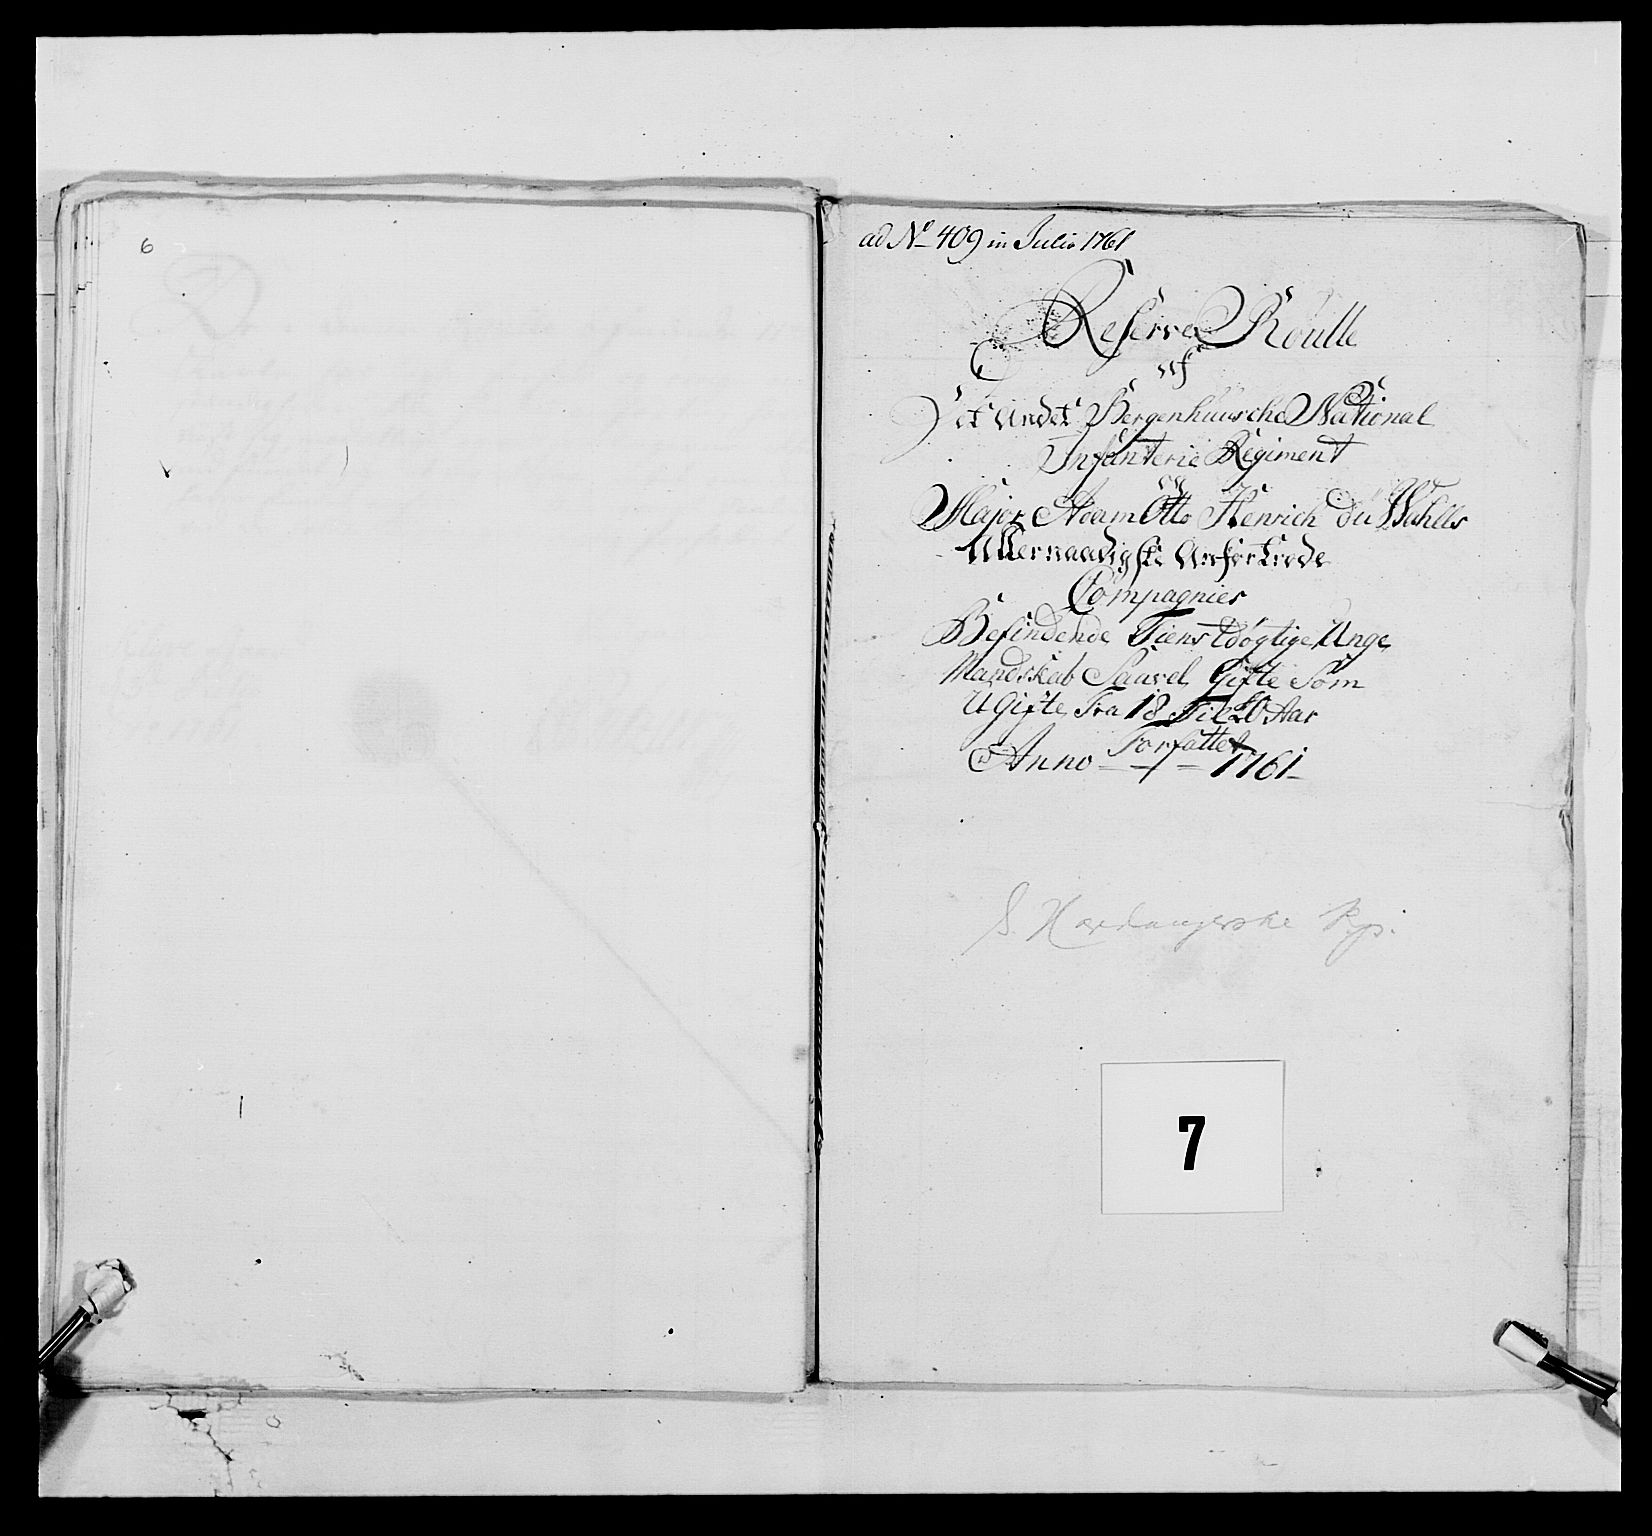 6
ad No 409 in Julio 1761
Reserve Roulle
af
Det Andet Bergenhuusche National
Infanterie Regiment
og
Major Adam Otto Henrich du Wahlls
Allernaadigste Anfortrode
Compagnies
Befindende Tienstdögtige Unge
Mandskab Saavel Gifte Som
UGifte Fra 18 Til 20 Aar
Forfattet
Anno 1761
S. Hardangerske Kp.
7